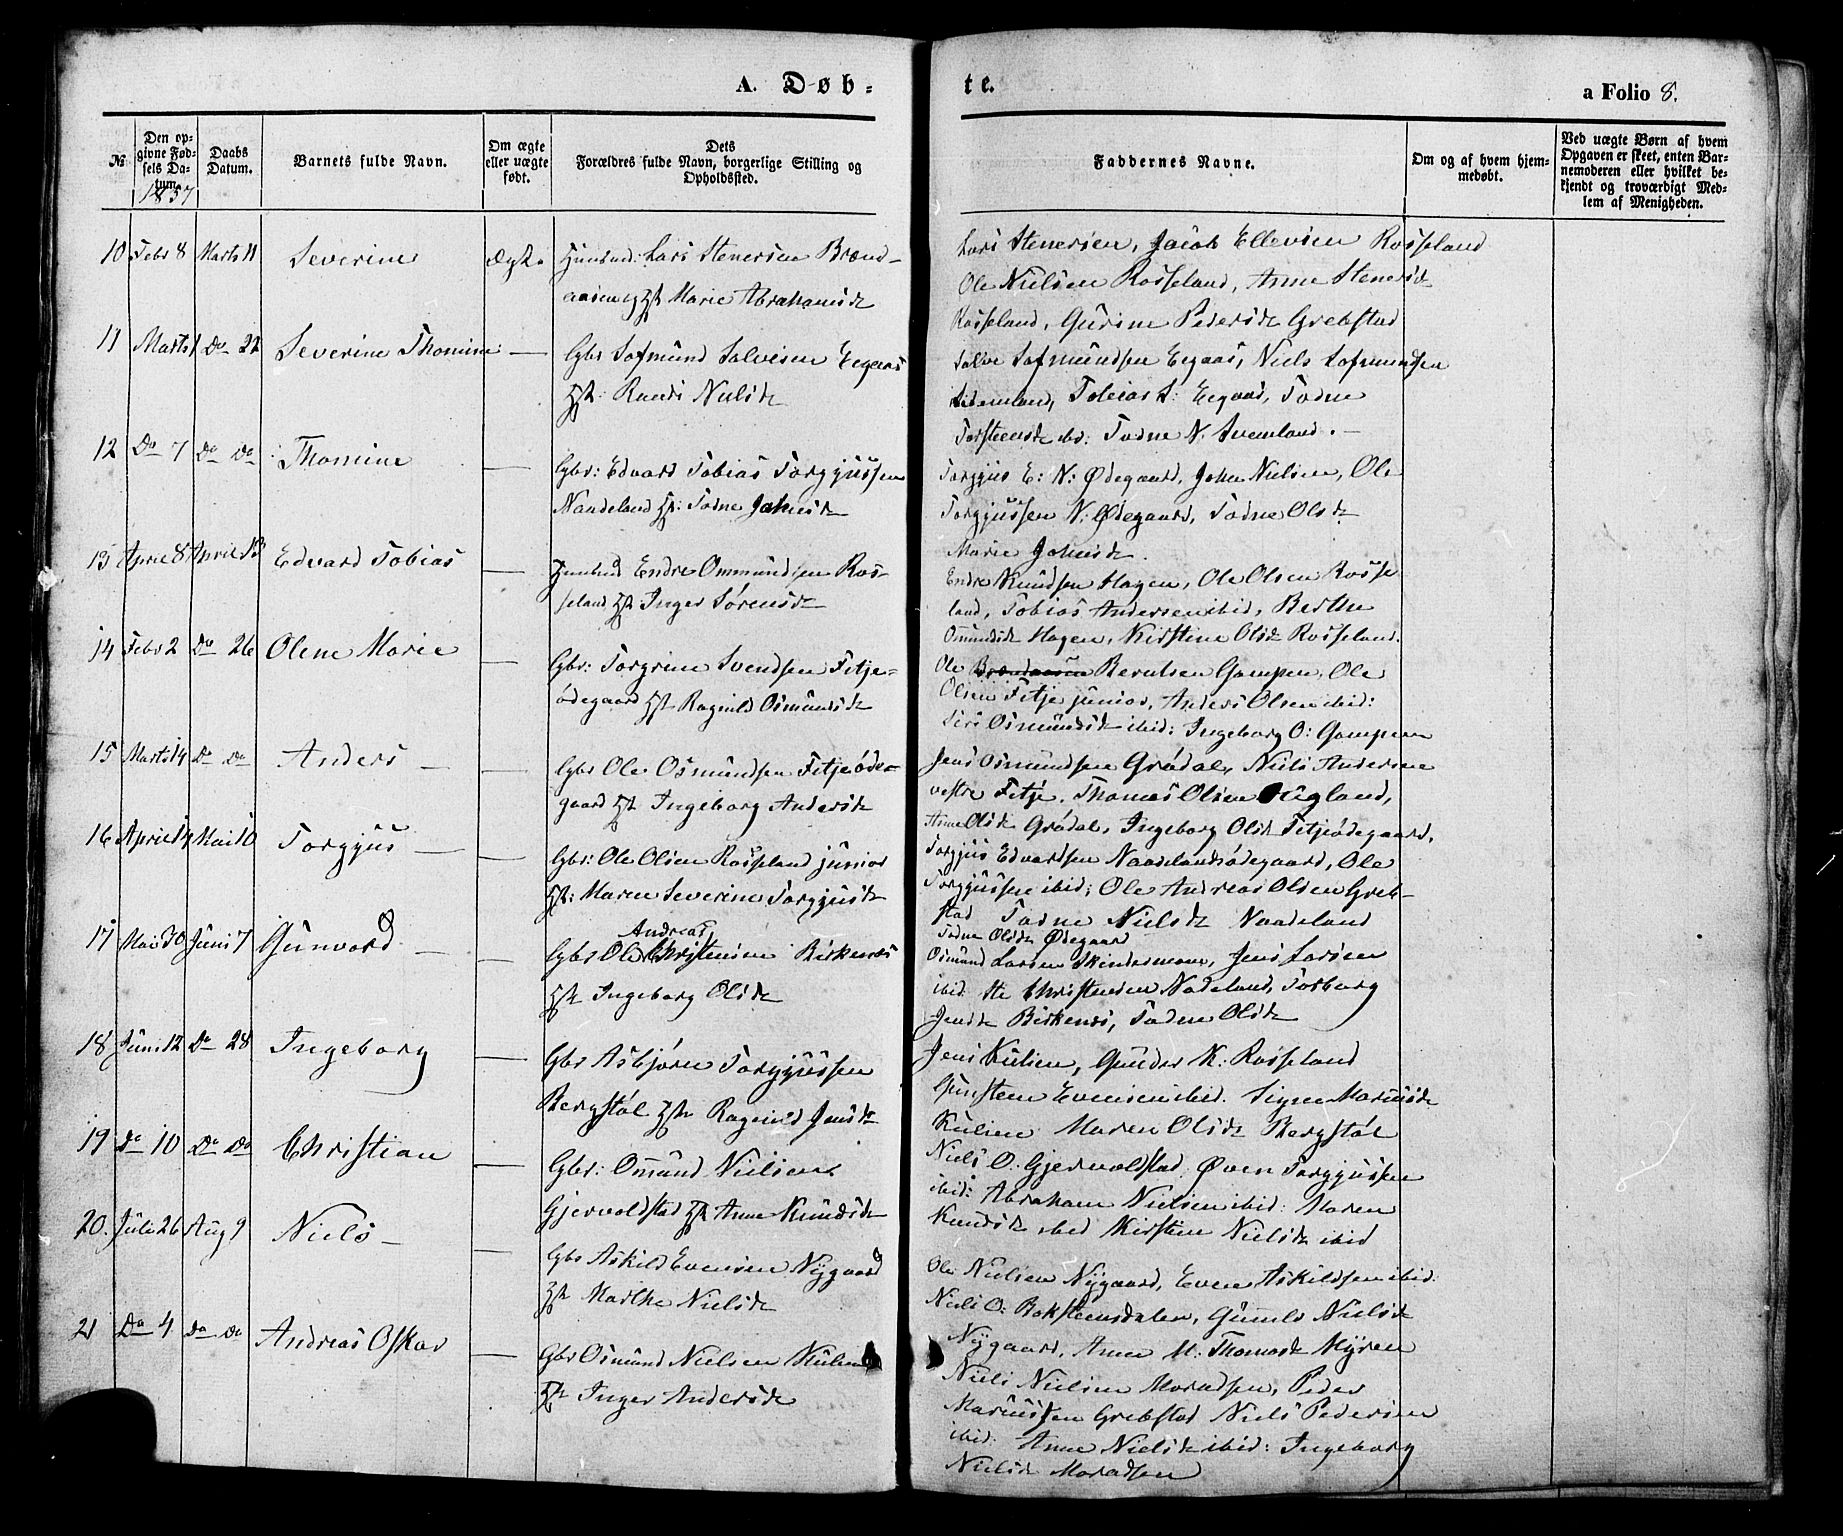 A. Døb-
te.
a Folio 8.
No
Den opgivne Fødsels Datum.
1857
Daabs Datum.
Barnets fulde Navn.
Om ægte eller uægte født.
Dets Forældres fulde Navn, borgerlige Stilling og Opholdssted.
Faddernes Navne.
Om og af hvem hjemmedøbt.
Ved uægte Børn af hvem Opgaven er skeet, enten Barnemoderen eller hvilket bekjendt og troværdigt Medlem af Menigheden.
10 Febr 8 Marts 11 Severine Ægte Huusmd: Lars Stenersen Brænd-
aasen og Hst Marie Abrahamsdr
Lars Stenersen, Jacob Ellevsen Rosseland
Ole Nielsen Rosseland, Anne Stenersdr
Rosseland, Gurine Pedersdr Grebstad
11 Marts 1 Do 22 Severine Thomine — Gbr Sofmund Salvesen Eegaas
Hst: Randi Nielsdr
Salve Sofmundsen Eegaas, Niels Sofmundsen
Tobias S: Eegaas, Todne
Torsteensdr ibd: Todne N. Svemland. —
12 Do 7 Do Do Thomine — Gbr: Edvard Tobias Torgjussen
Naadeland Hst: Todne Johnsdr
Torgjus E: N: Ødegaard, John Nielsen, Ole
Torgjussen N: Ødegaard, Todne Olsdr
Marie Johnsdr.
13 April 8 April 13 Edvard Tobias — Huusmd Endre Ommundsen Ros-
seland Hst Inger Sørensdr
Endre Knudsen Hagen, Ole Olsen Rosse
land, Tobias Andersen ibid, Berthe
Osmundsdr Hagen, Kirstine Olsdr Rosseland.
14 Febr 2 Do 26 Olene Marie — Gbr: Torgrim Svendsen Fitje-
ødegaard Hst Ragnild Osmundsdr
Ole Brændaasen Berulsen Gampen, Ole
Olsen Fitje junior, Anders Olsen ibid:
Siri Osmundsdr ibid: Ingeborg O: Gampen
15 Marts 14 Do Do Anders — — Gbr Ole Osmundsen Fitjeøde-
gaard Hst Ingeborg Andersdr
Jens Osmundsen Grødal, Niels Andersen
vestre Fitje. Thomas Olsen Ugland,
Anne Olsdr Grødal, Ingeborg Olsdr Fitjeødegaard,
16 April 14 Mai 10 Torgjus — — Gbr: Ole Olsen Rosseland junior
Hst: Maren Severine Torgjusdr
Torgjus Edvardsen Naadelandsødegaard, Ole
Torgjussen ibid; Ole Andreas Olsen Greb-
stad Todne Nielsdr Naadeland
Todne Olsdr Ødegaard
17 Mai 30 Juni 7 Gunvord — — Gbr Ole Andreas Christensen Birkenes
Hst Ingeborg Olsdr
Osmund Larsen Skindermoen, Jens Larsen
ibid. Ole Christensen Nadeland, Torborg
Jensdr Birkenes, Todne Olsdr
18 Juni 12 Do 28 Ingeborg — Gbr Asbjørn Torgjussen
Bergstøl Hst Ragnild Jensdr
Jens Kulien, Gunder K: Rosseland
Gunsteen Evensen ibid. Signe Mariusdr
Kulien Maren Olsdr Bergstøl
19 Do 10 Do Do Christian — Gbr: Osmund Nielsen
Gjervoldstad Hst Anne Knudsdr
Niels O. Gjervoldstad, Øven Torgjussen
ibid: Abraham Nielsen ibid: Maren
Knudsdr ibid Kirstine Nielsdr ibid
20. Juli 26 Aug 9 Niels — — Gbr Askild Evensen Nygaard
Hst Marthe Nielsdr
Ole Nielsen Nygaard, Even Askildsen ibid:
Niels O: Boksteensdalen, Gunnild Nielsdr
Nygaard, Anne M: Thomasdr Myren
21 Do 4 Do Do Andreas Oskar — Gbr Osmund Nielsen Kulien
Hst Inger Andersdr
Niels Nielsen Moradsen, Peder
Mariussen Grebstad Niels Pedersen
ibid: Anne Nielsdr ibid: Ingeborg
Nielsdr Moradsen